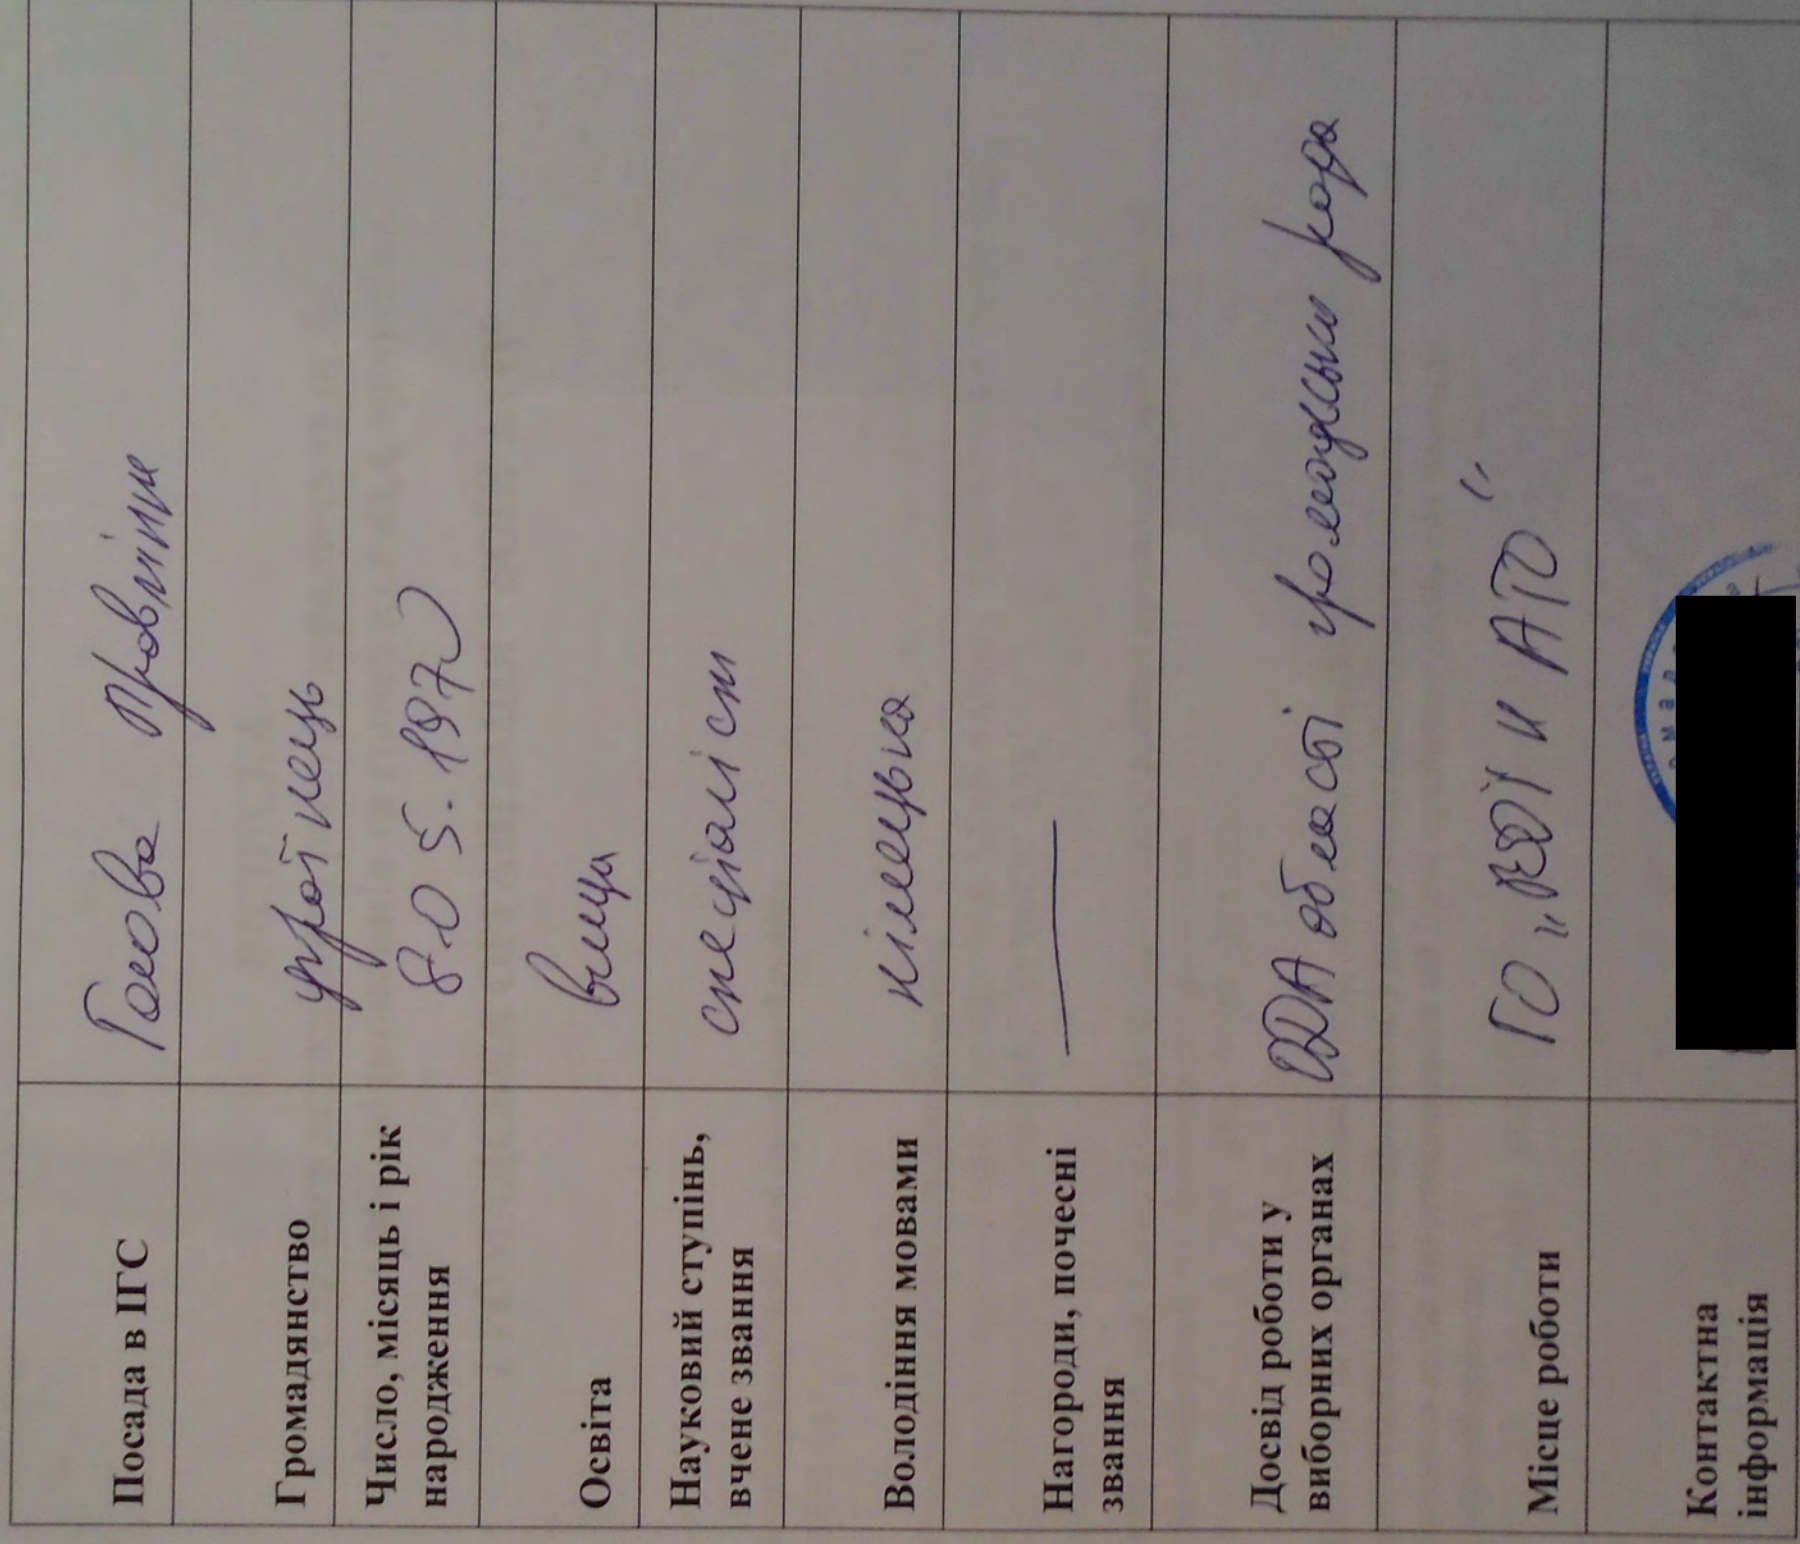 Посада в ІГС
Голова правління
Громадянство
українець
Число, місяць і рік
народження
8.05.197
Освіта
вища
Науковий ступінь,
вчене звання
спеціаліст
Володіння мовами
німецька
Нагороди, почесні
звання
—
Досвід роботи у
виборних органах
ОДА області громадськи рада
Місце роботи
ГО „ и АТО"
Контактна
інформація